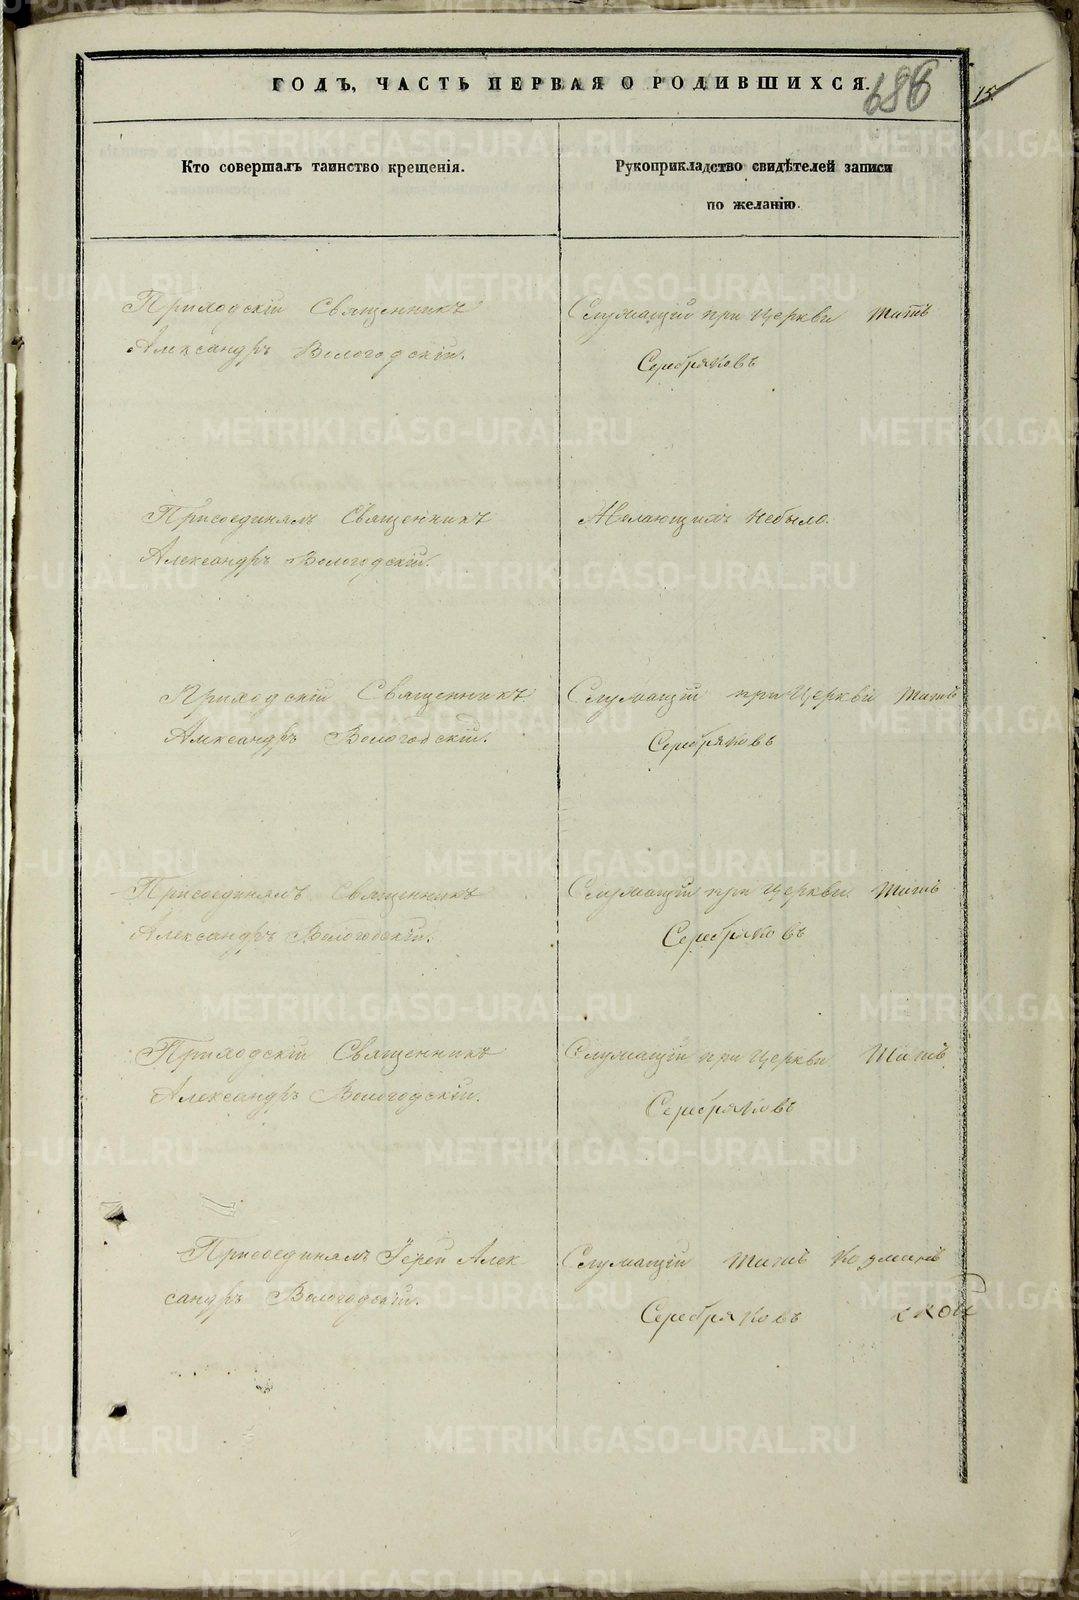 ГОДЪ, ЧАСТЬ ПЕРВАЯ О РОДИВШИХСЯ.
686
15.
Кто совершалъ таинство крещенія.
Рукоприкладство свидѣтелей записи
по желанію.
Приходскій Священникъ
Александръ Вологодскій.
Служащій при Церкви Титъ
Серебряковъ
Присоединялъ Священникъ
Александръ Вологодскій.
Желающихъ небыло.
Приходскій Священникъ
Александръ Вологодскій.
Служащій при Церкви Титъ
Серебряковъ
Присоединялъ Священникъ
Александръ Вологодскій.
Служащій при Церкви Титъ
Серебряковъ
Приходскій Священникъ
Александръ Вологодскій.
Служащій при Церкви Титъ
Серебряковъ
Присоединялъ Іерей Алек
сандръ Вологодскій.
Служащій Титъ Козминъ
Серебряковъ
ской
METRIKI.GASO-URAL.RU